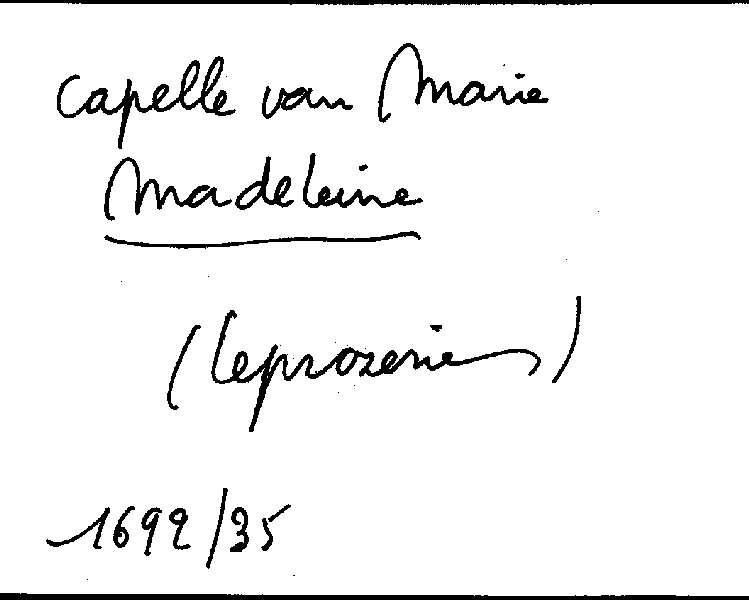 Capelle van Marie
Madeleine
(Leprozerie)
1692/35